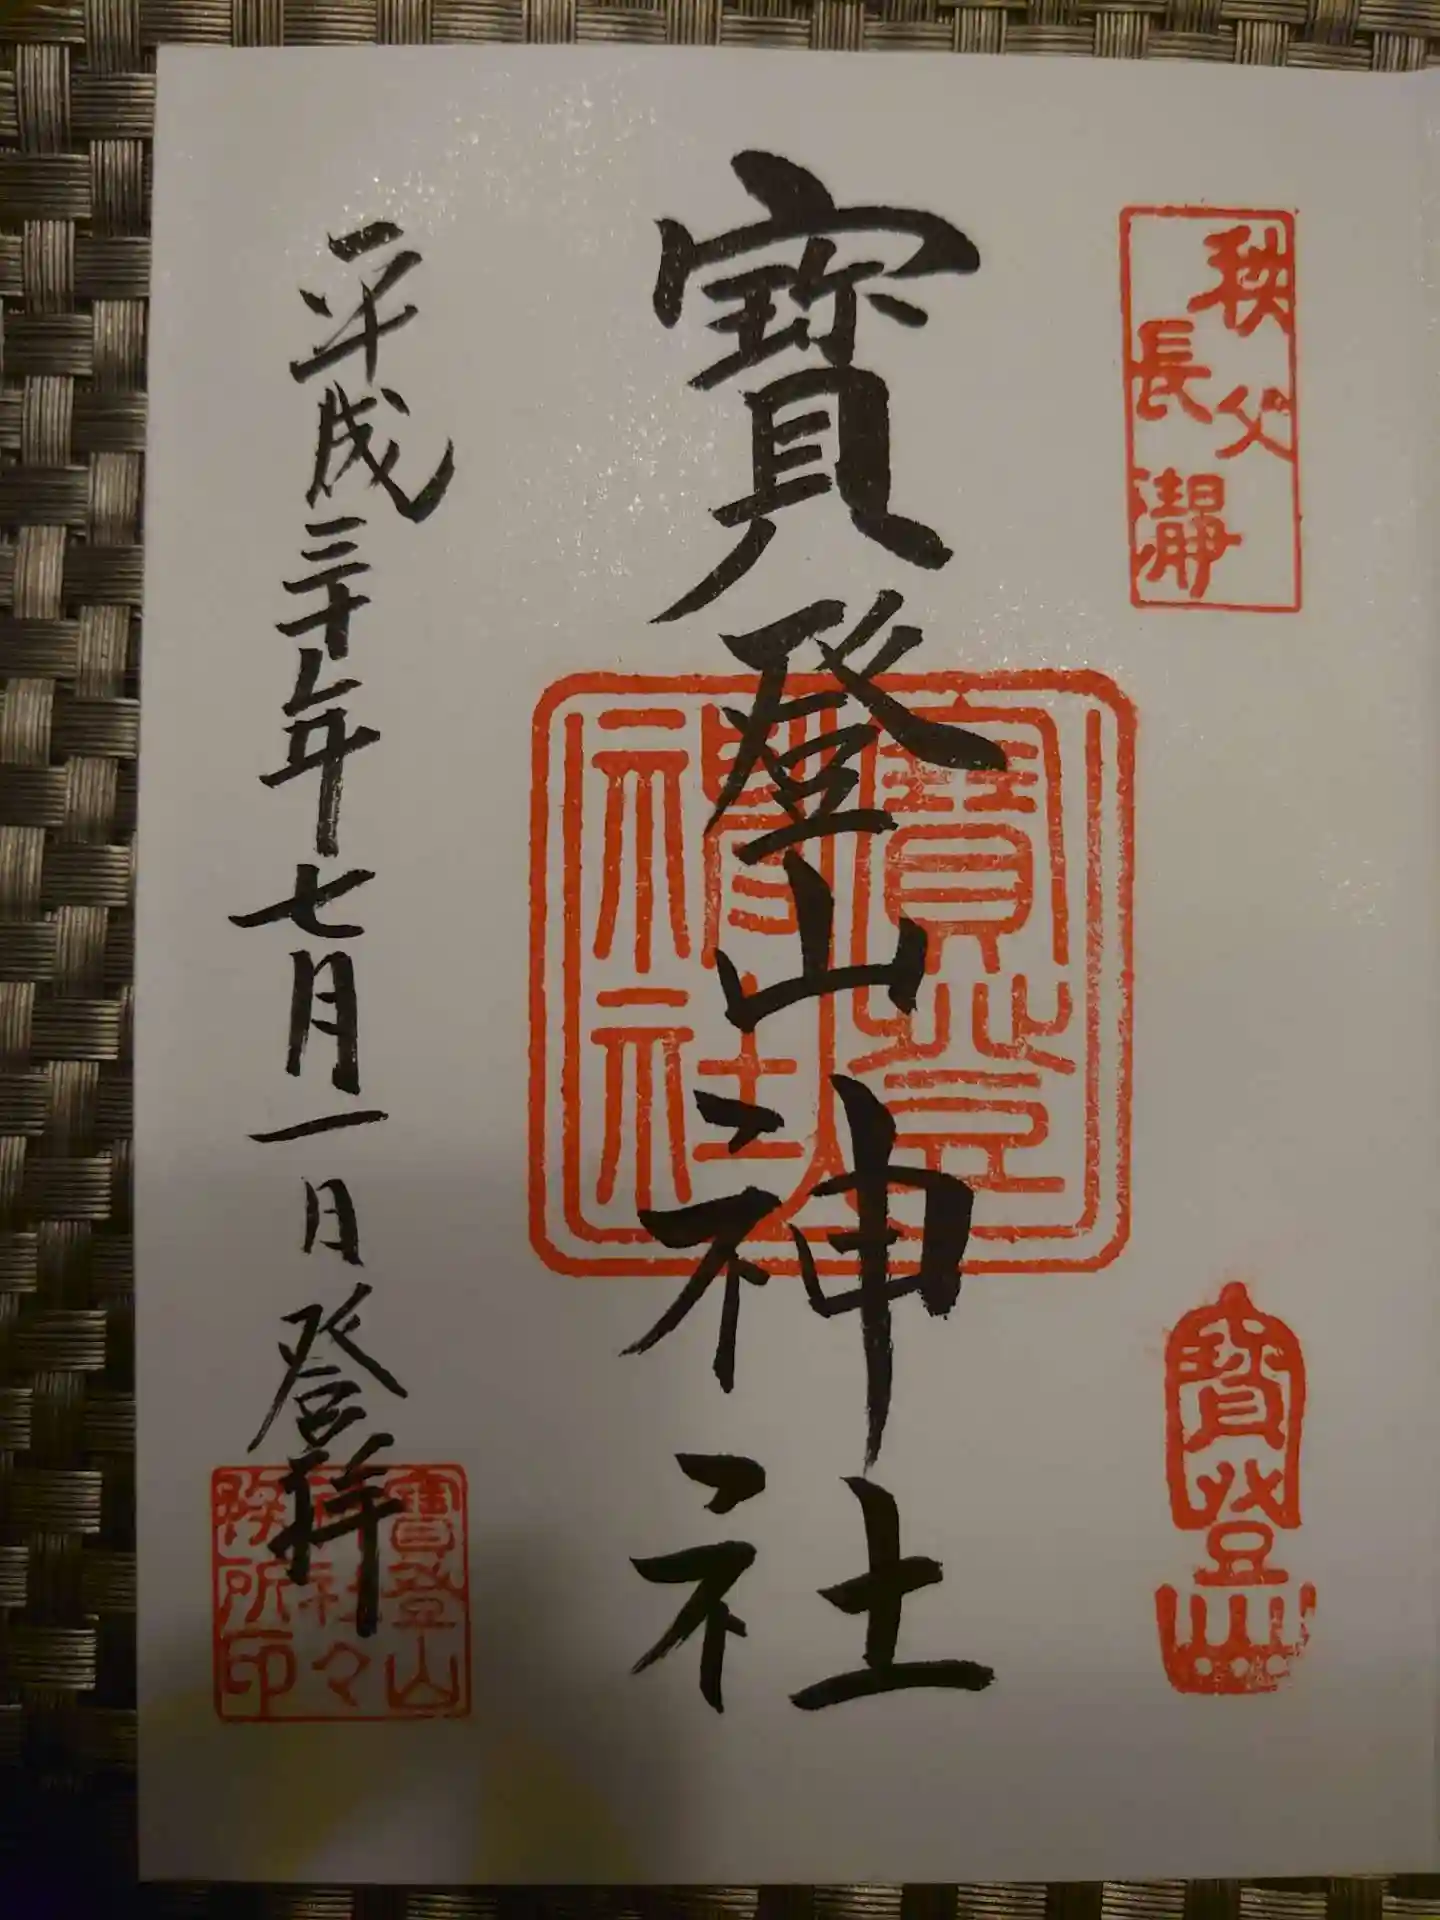 秩父
長瀞
寶登山
寶登山神社
寶登
神社
平成三十年七月一日登拝
寶登山
神社々
務所印